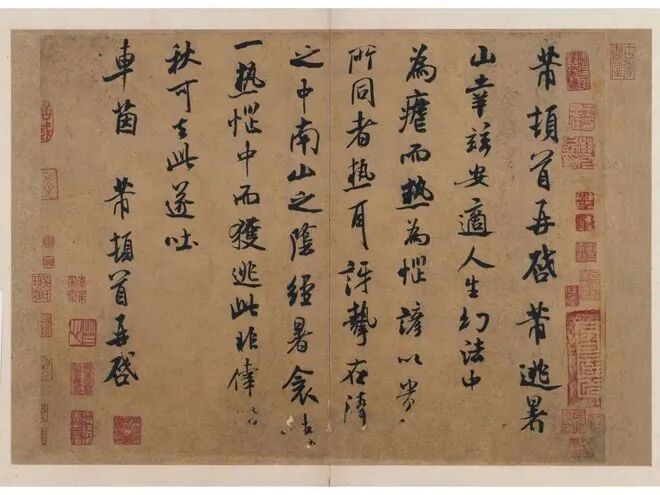 芾頓首再啓芾逃暑
山幸安適人生幻法中
為瘧而熱為惱諺以貴
所同者熱耳訝摯在清
之中南山之陰經暑衾
一熱惱中而獲逃此非
秋可去此遂吐
車茵 芾頓首再啓